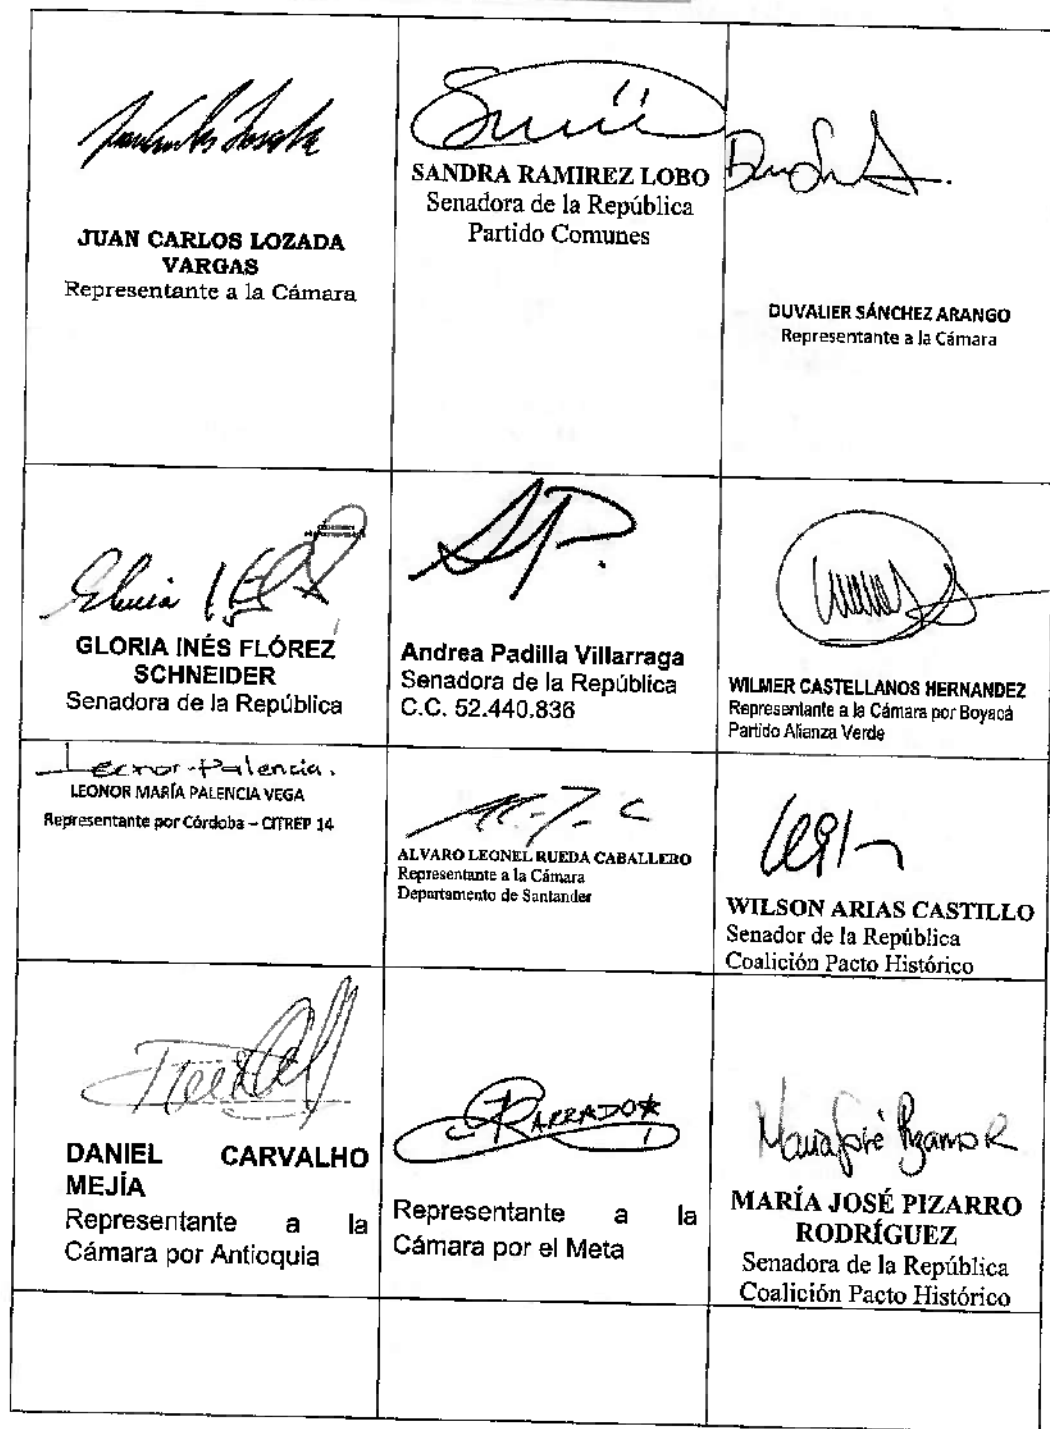 JUAN CARLOS LOZADA
VARGAS
Representante a la Cámara
SANDRA RAMIREZ LOBO
Senadora de la República
Partido Comunes
DUVALIER SÁNCHEZ ARANGO
Representante a la Cámara
GLORIA INÉS FLÓREZ
SCHNEIDER
Senadora de la República
Andrea Padilla Villarraga
Senadora de la República
C.C. 52.440.836
WILMER CASTELLANOS HERNANDEZ
Representante a la Cámara por Boyacá
Partido Alianza Verde
Leonor Palencia.
LEONOR MARÍA PALENCIA VEGA
Representante por Córdoba – CITREP 14
ALVARO LEONEL RUEDA CABALLERO
Representante a la Cámara
Departamento de Santander
WILSON ARIAS CASTILLO
Senador de la República
Coalición Pacto Histórico
DANIEL CARVALHO
MEJÍA
Representante a la
Cámara por Antioquia
Representante a la
Cámara por el Meta
María José Pizarro R
MARÍA JOSÉ PIZARRO
RODRÍGUEZ
Senadora de la República
Coalición Pacto Histórico